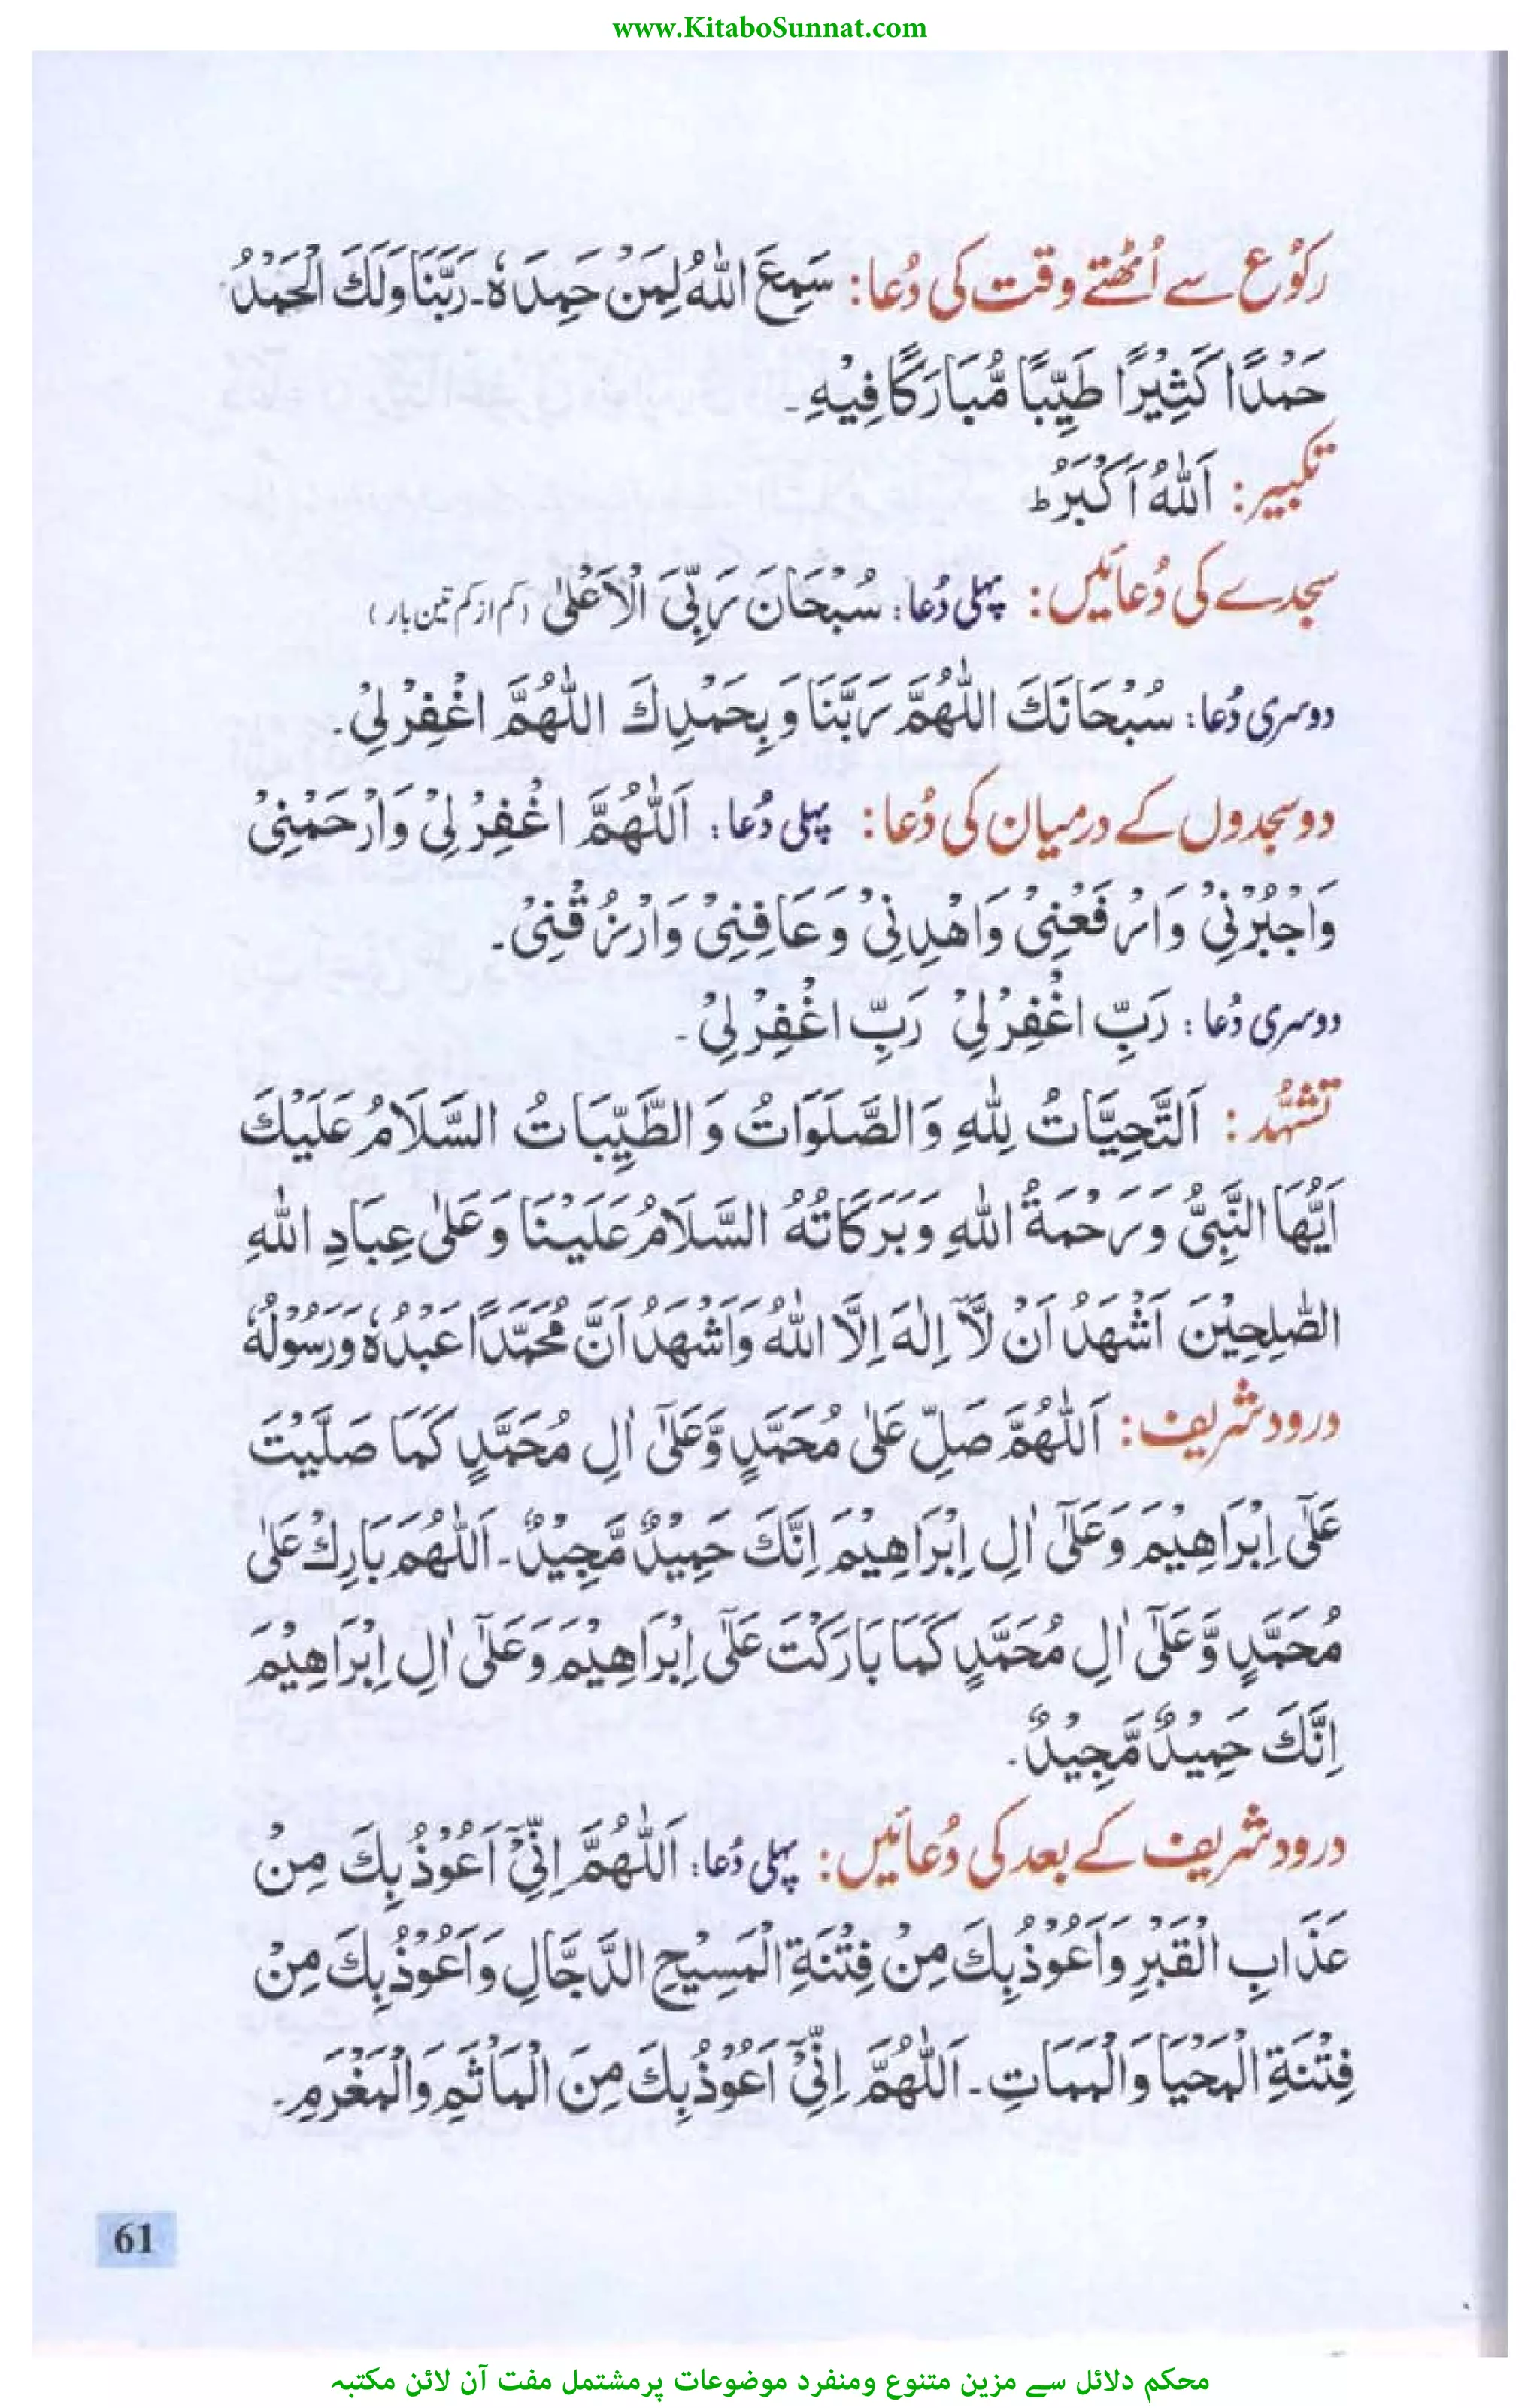 www.KitaboSunnat.com
رکوع سے اُٹھتے وقت کی دُعا: سَمِعَ اللهُ لِمَنْ حَمِدَهٗ۔ رَبَّنَا وَلَكَ الْحَمْدُ
حَمْدًا كَثِيْرًا طَيِّبًا مُّبَارَكًا فِيْهِ۔
تکبیر: اَللهُ اَكْبَرُ ط
سجدے کی دُعائیں: پہلی دُعا: سُبْحَانَ رَبِّيَ الْاَعْلٰى (کم از کم تین بار)
دوسری دُعا: سُبْحَانَكَ اللّٰهُمَّ رَبَّنَا وَبِحَمْدِكَ اللّٰهُمَّ اغْفِرْلِيْ۔
دو سجدوں کے درمیان کی دُعا: پہلی دُعا: اَللّٰهُمَّ اغْفِرْلِيْ وَارْحَمْنِيْ
وَاجْبُرْنِيْ وَارْفَعْنِيْ وَاهْدِنِيْ وَعَافِنِيْ وَارْزُقْنِيْ۔
دوسری دُعا: رَبِّ اغْفِرْلِيْ رَبِّ اغْفِرْلِيْ۔
تشہُّد: اَلتَّحِيَّاتُ لِلّٰهِ وَالصَّلَوَاتُ وَالطَّيِّبَاتُ السَّلَامُ عَلَيْكَ
اَيُّهَا النَّبِيُّ وَرَحْمَةُ اللهِ وَبَرَكَاتُهُ السَّلَامُ عَلَيْنَا وَعَلٰى عِبَادِ اللهِ
الصّٰلِحِيْنَ اَشْهَدُ اَنْ لَّآ اِلٰهَ اِلَّا اللهُ وَاَشْهَدُ اَنَّ مُحَمَّدًا عَبْدُهٗ وَرَسُوْلُهٗ
درود شریف: اَللّٰهُمَّ صَلِّ عَلٰى مُحَمَّدٍ وَّعَلٰٓى اٰلِ مُحَمَّدٍ كَمَا صَلَّيْتَ
عَلٰٓى اِبْرَاهِيْمَ وَعَلٰٓى اٰلِ اِبْرَاهِيْمَ اِنَّكَ حَمِيْدٌ مَّجِيْدٌ۔ اَللّٰهُمَّ بَارِكْ عَلٰى
مُحَمَّدٍ وَّعَلٰٓى اٰلِ مُحَمَّدٍ كَمَا بَارَكْتَ عَلٰٓى اِبْرَاهِيْمَ وَعَلٰٓى اٰلِ اِبْرَاهِيْمَ
اِنَّكَ حَمِيْدٌ مَّجِيْدٌ۔
درود شریف کے بعد کی دُعائیں: پہلی دُعا: اَللّٰهُمَّ اِنِّيْٓ اَعُوْذُ بِكَ مِنْ
عَذَابِ الْقَبْرِ وَاَعُوْذُ بِكَ مِنْ فِتْنَةِ الْمَسِيْحِ الدَّجَّالِ وَاَعُوْذُ بِكَ مِنْ
فِتْنَةِ الْمَحْيَا وَالْمَمَاتِ۔ اَللّٰهُمَّ اِنِّيْٓ اَعُوْذُ بِكَ مِنَ الْمَاْثَمِ وَالْمَغْرَمِ۔
61
محکم دلائل سے مزین متنوع ومنفرد موضوعات پرمشتمل مفت آن لائن مکتبہ